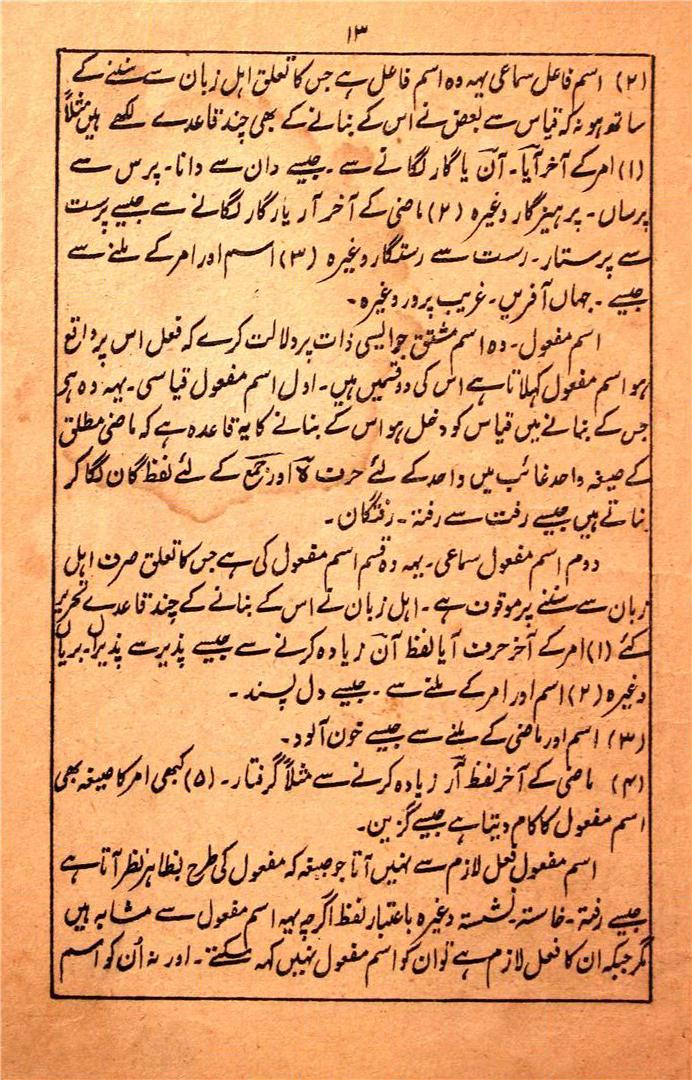 ۱۳
(۲) اسم فاعل سماعی یہہ وہ اسم فاعل ہے جس کا تعلق اہل زبان سے سننے کے
ساتھ ہو نہ کہ قیاس سے بعض نے اس کے بنانے کے بھی چند قاعدے لکھے ہیں مثلاً
(۱) امر کے آخر آیا۔ آن یا گار لگانے سے۔ جیسے دان سے دانا۔ پرس سے
پرساں۔ پرہیزگار وغیرہ (۲) ماضی کے آخر آر یا رگار لگانے سے جیسے پرست
سے پرستار۔ رست سے رستگار وغیرہ (۳) اسم اور امر کے ملنے سے
جیسے۔ جہاں آفریں۔ غریب پرور وغیرہ۔
اسم مفعول۔ وہ اسم مشتق جو ایسی ذات پر دلالت کرے کہ فعل اس پر واقع
ہو اسم مفعول کہلاتا ہے اس کی دو قسمیں ہیں۔ اول اسم مفعول قیاسی۔ یہہ وہ ہے
جس کے بنانے میں قیاس کو دخل ہو اس کے بنانے کا یہ قاعدہ ہے کہ ماضی مطلق
کے صیغہ واحد غائب میں واحد کے لئے حرف ہ اور جمع کے لئے لفظ گان لگا کر
بناتے ہیں جیسے رفت سے رفتہ۔ رفتگان۔
دوم اسم مفعول سماعی۔ یہہ وہ قسم اسم مفعول کی ہے جس کا تعلق صرف اہل
زبان سے سننے پر موقوف ہے۔ اہل زبان نے اس کے بنانے کے چند قاعدے تحریر
کئے (۱) امر کے آخر حرف آ یا لفظ آن زیادہ کرنے سے جیسے پذیر سے پذیرا۔ بریاں
وغیرہ (۲) اسم اور امر کے ملنے سے۔ جیسے دل پسند۔
(۳) اسم اور ماضی کے ملنے سے جیسے خون آلود۔
(۴) ماضی کے آخر لفظ آر زیادہ کرنے سے مثلاً گرفتار۔ (۵) کبھی امر کا صیغہ بھی
اسم مفعول کا کام دیتا ہے جیسے گزین۔
اسم مفعول فعل لازم سے نہیں آتا جو صیغہ کہ مفعول کی طرح بظاہر نظر آتا ہے
جیسے رفتہ۔ خاستہ۔ نشستہ وغیرہ باعتبار لفظ اگرچہ یہہ اسم مفعول سے مشابہ ہیں
مگر جبکہ ان کا فعل لازم ہے تو ان کو اسم مفعول نہیں کہہ سکتے۔ اور نہ اُن کو اسم